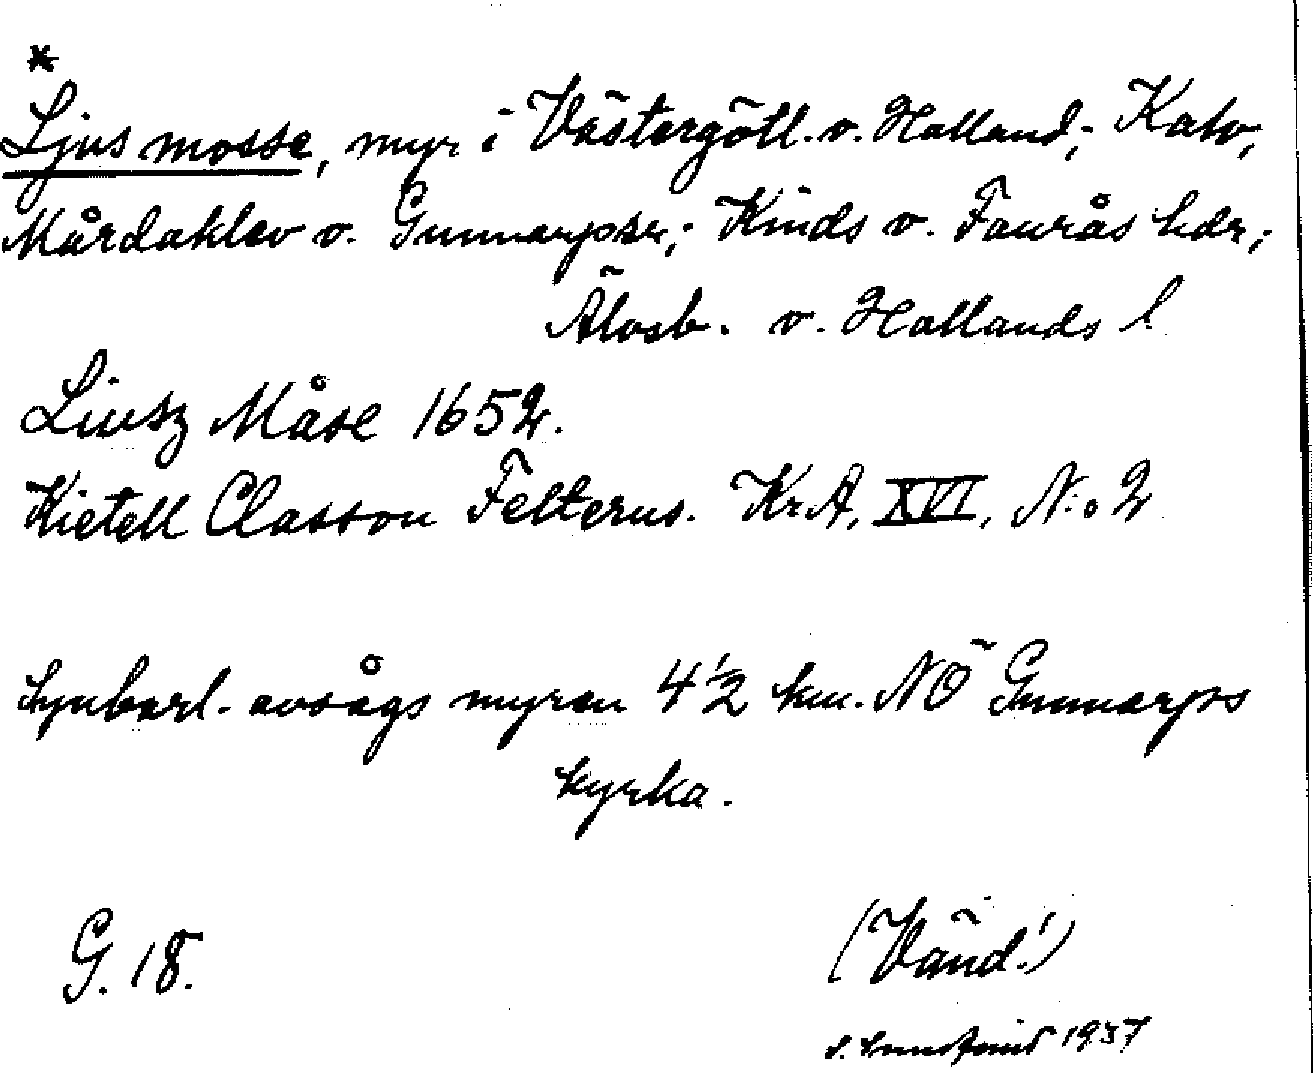 *
Ljus mosse, myr i Västergötl. o. Halland; Kalv,
Mårdaklev o. Gunnarpsr; Kinds o. Faurås hdr;
Älvsb. o. Hallands l.
Liusz Måse 1652.
Kietell Classon Felterus. Kr.A. XVI, N:o 2
Synbarl. avsågs myren 4 1/2 km. NÖ Gunnarps
kyrka.
G. 18.
(Vänd!)
1937